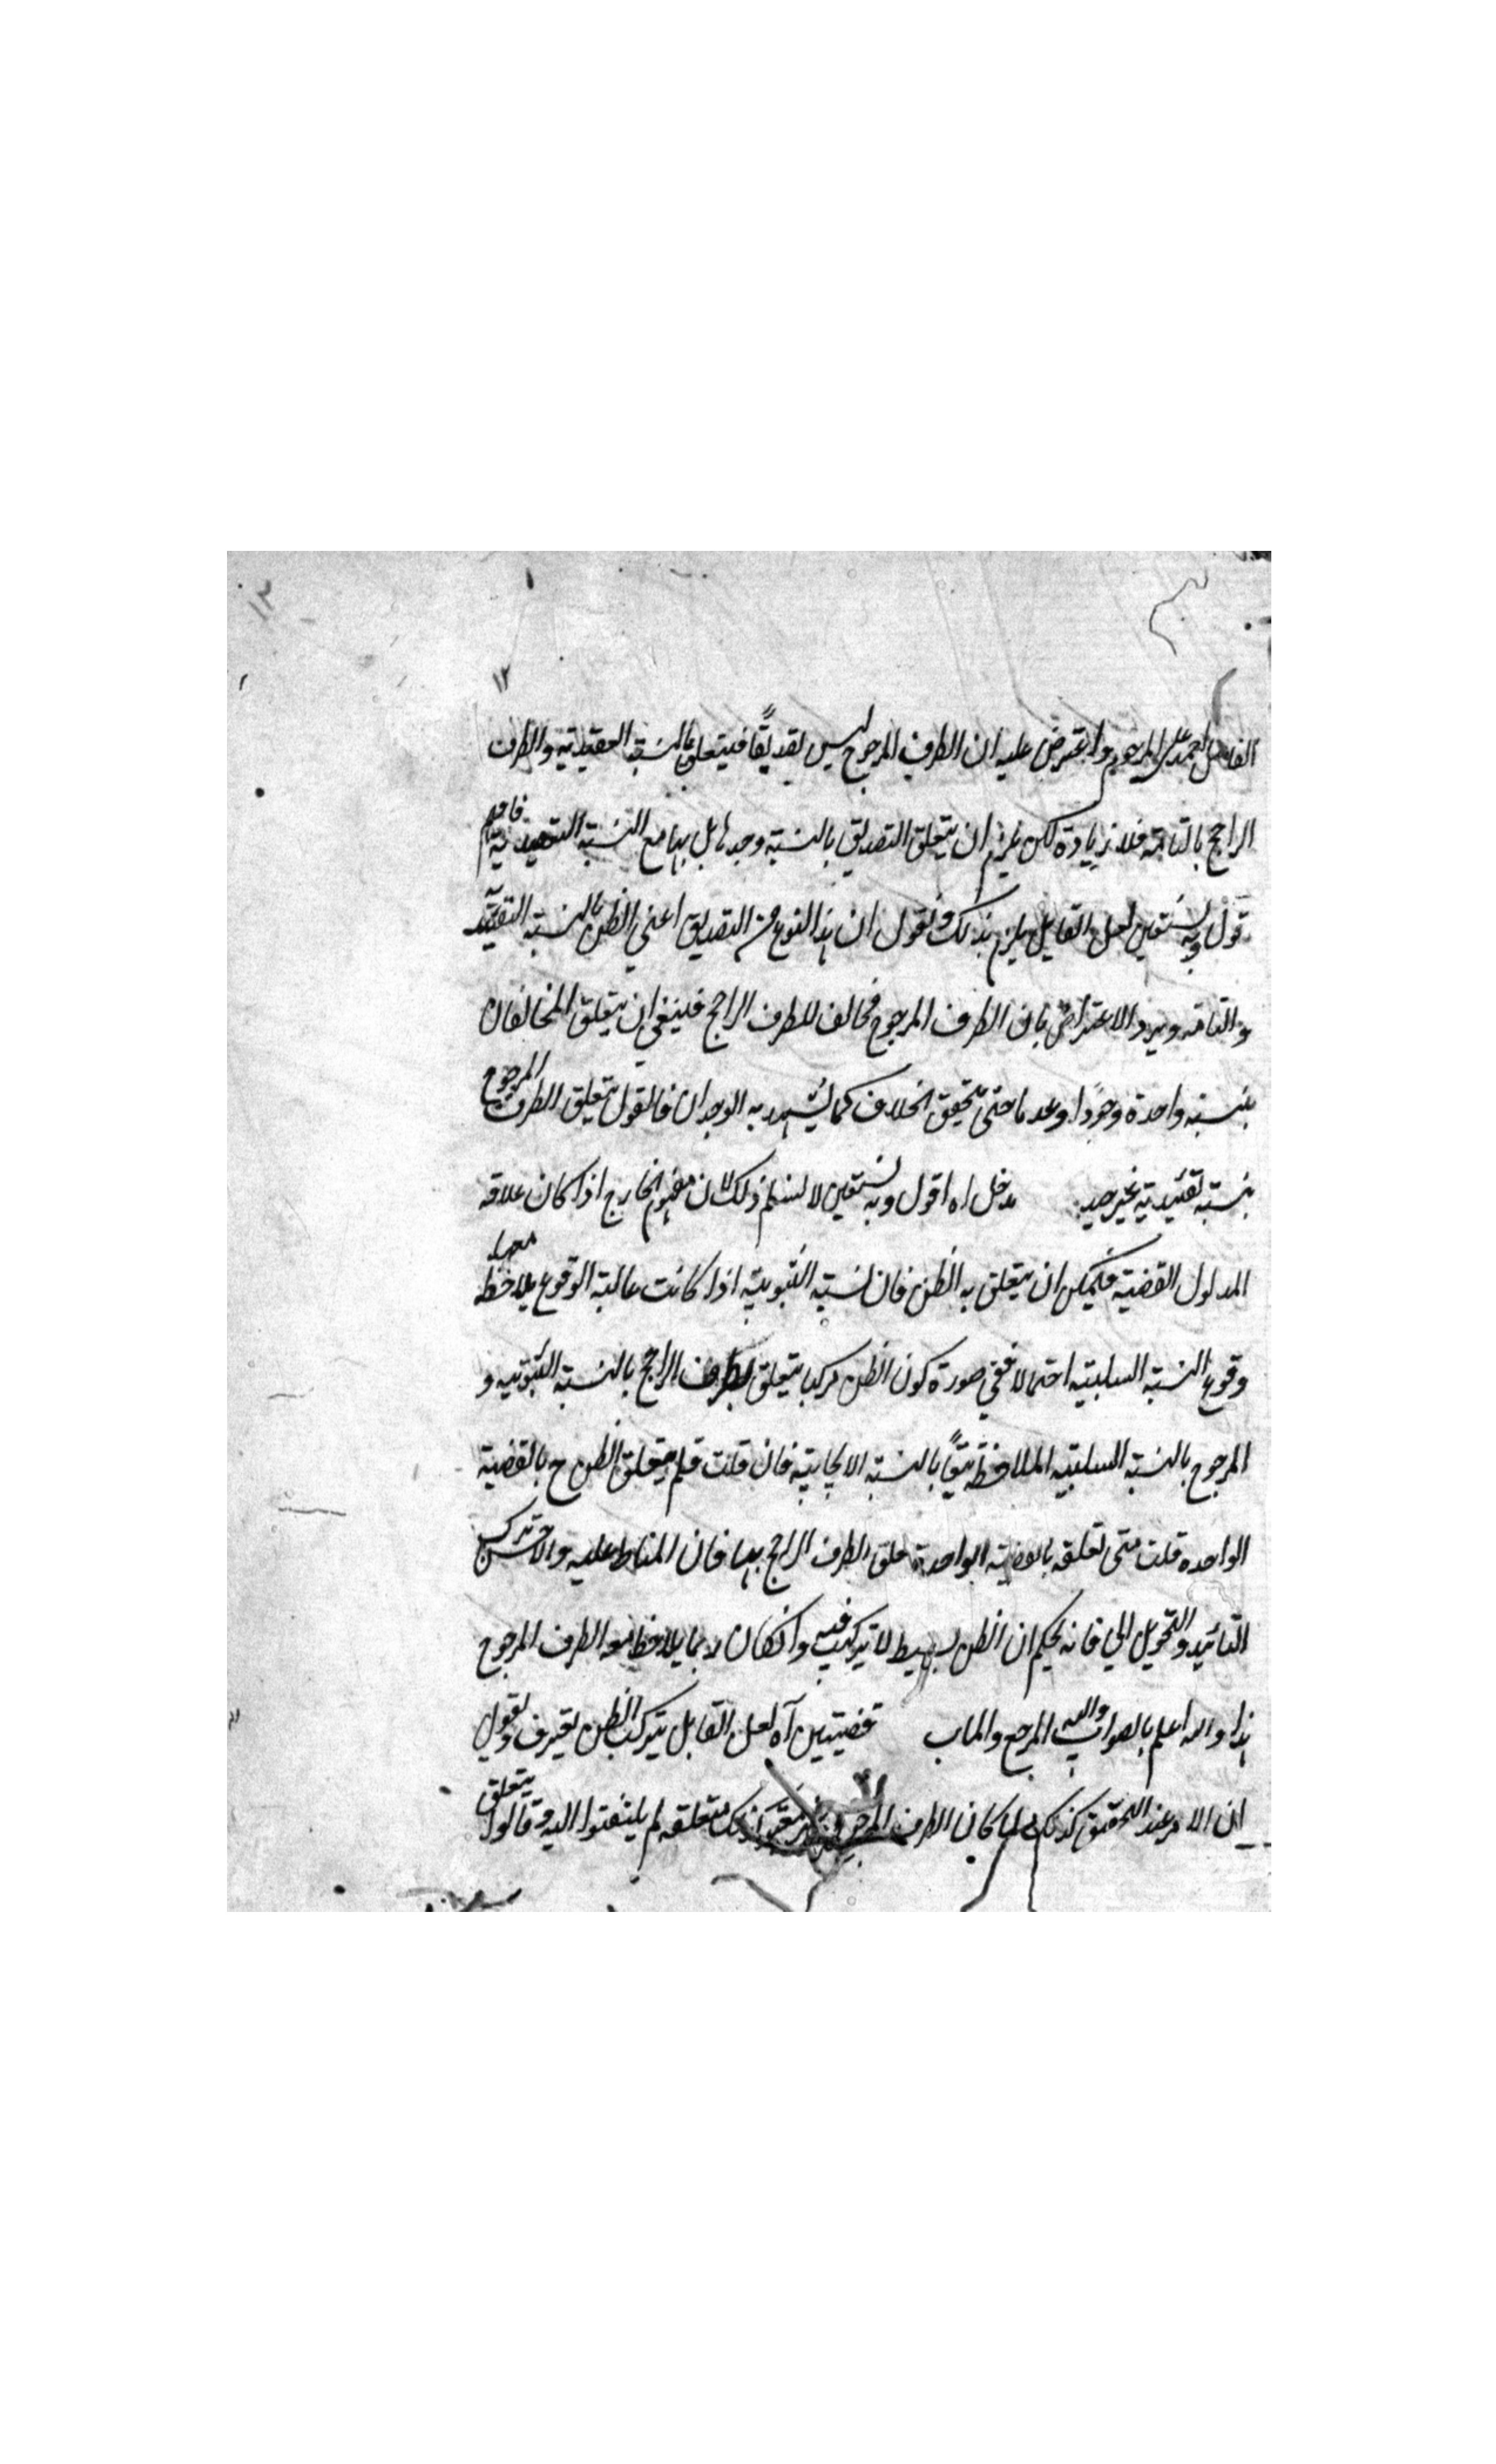 ١٣
١٢
الفاضل احمد علي المرحوم واعترض عليه ان الطرف المرجوح ليس تصديقًا فيتعلق بالنسبة التقييدية والطرف
الراجح بالتامة فلا زيادة لكن يلزم ان يتعلق التصديق بالنسبة وحدها بل بها مع النسبة التقييدية فافهم
اقول وبه نستعين لعل القايل يلزم بذلك ويقول ان هذا النوع من التصديق اعني الظن بالنسبة التقييدية
والتامة ويرد الاعتراض بان الطرف المرجوح مخالف للطرف الراجح فينبغي ان يتعلق المخالفان
بنسبة واحدة وجودا وعدما حتى يتحقق الخلاف كما يشهد به الوجدان فالقول بتعلق الطرف المرجوح
بنسبة تقييدية غير جيد مدخل اه اقول وبه نستعين لا نسلم ذلك لان مفهوم الخارج اذا كان علاقة
المدلول القضية فيمكن ان يتعلق به الظن فان نسبة الثبوتية اذا كانت غالبة الوقوع يلاحظ معها
وقوع النسبة السلبية احتمالا ففي صورة كون الظن مركبا يتعلق الطرف الراجح بالنسبة الثبوتية و
المرجوح بالنسبة السلبية الملاحظة تبعًا بالنسبة الايجابية فان قلت فلم يتعلق الظن ح بالقضية
الواحدة قلت متى تعلقه بالقضية الواحدة تعلق الطرف الراجح بها فان المناط عليه والاحسن ترك
التائيد والتحويل الي فانه يحكم ان الظن بسيط لا تركيب فيه وانكان ربما يلاحظ معه الطرف المرجوح
هذا والله اعلم بالصواب واليه المرجع والماب قضيتين آه لعل القايل بتركب الظن يعترف ويقول
ان الامر عند التحقيق كذلك لما كان الطرف المرجوح غير معتبر كذلك متعلقه لم يلتفتوا اليه وقالوا يتعلق